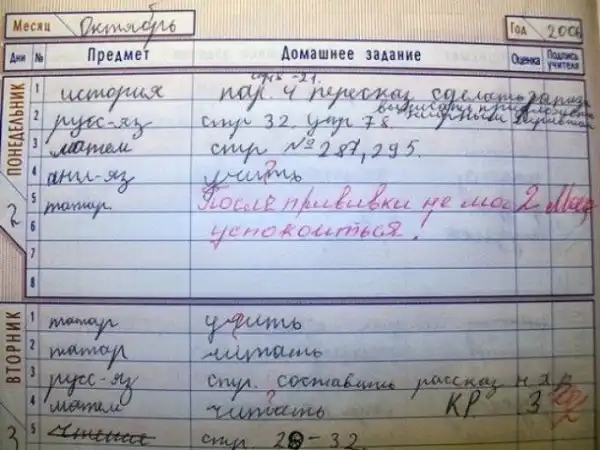 Месяц Октябрь Год 2006
Дни № Предмет Домашнее задание Оценка Подпись учителя
ПОНЕДЕЛЬНИК 2
стр -21.
1 история пар. 4 пересказ сделать
2 русс-яз стр 32. упр 78.
3 матем стр № 287, 295.
4 анг-яз учить
5 татар. После прививки не мог 2
6 успокоиться!
7
8
ВТОРНИК 3
1 татар учить
2 татар читать
3 русс-яз стр. составить рассказ
4 матем читать КР 3
5 чтение стр. 28-32